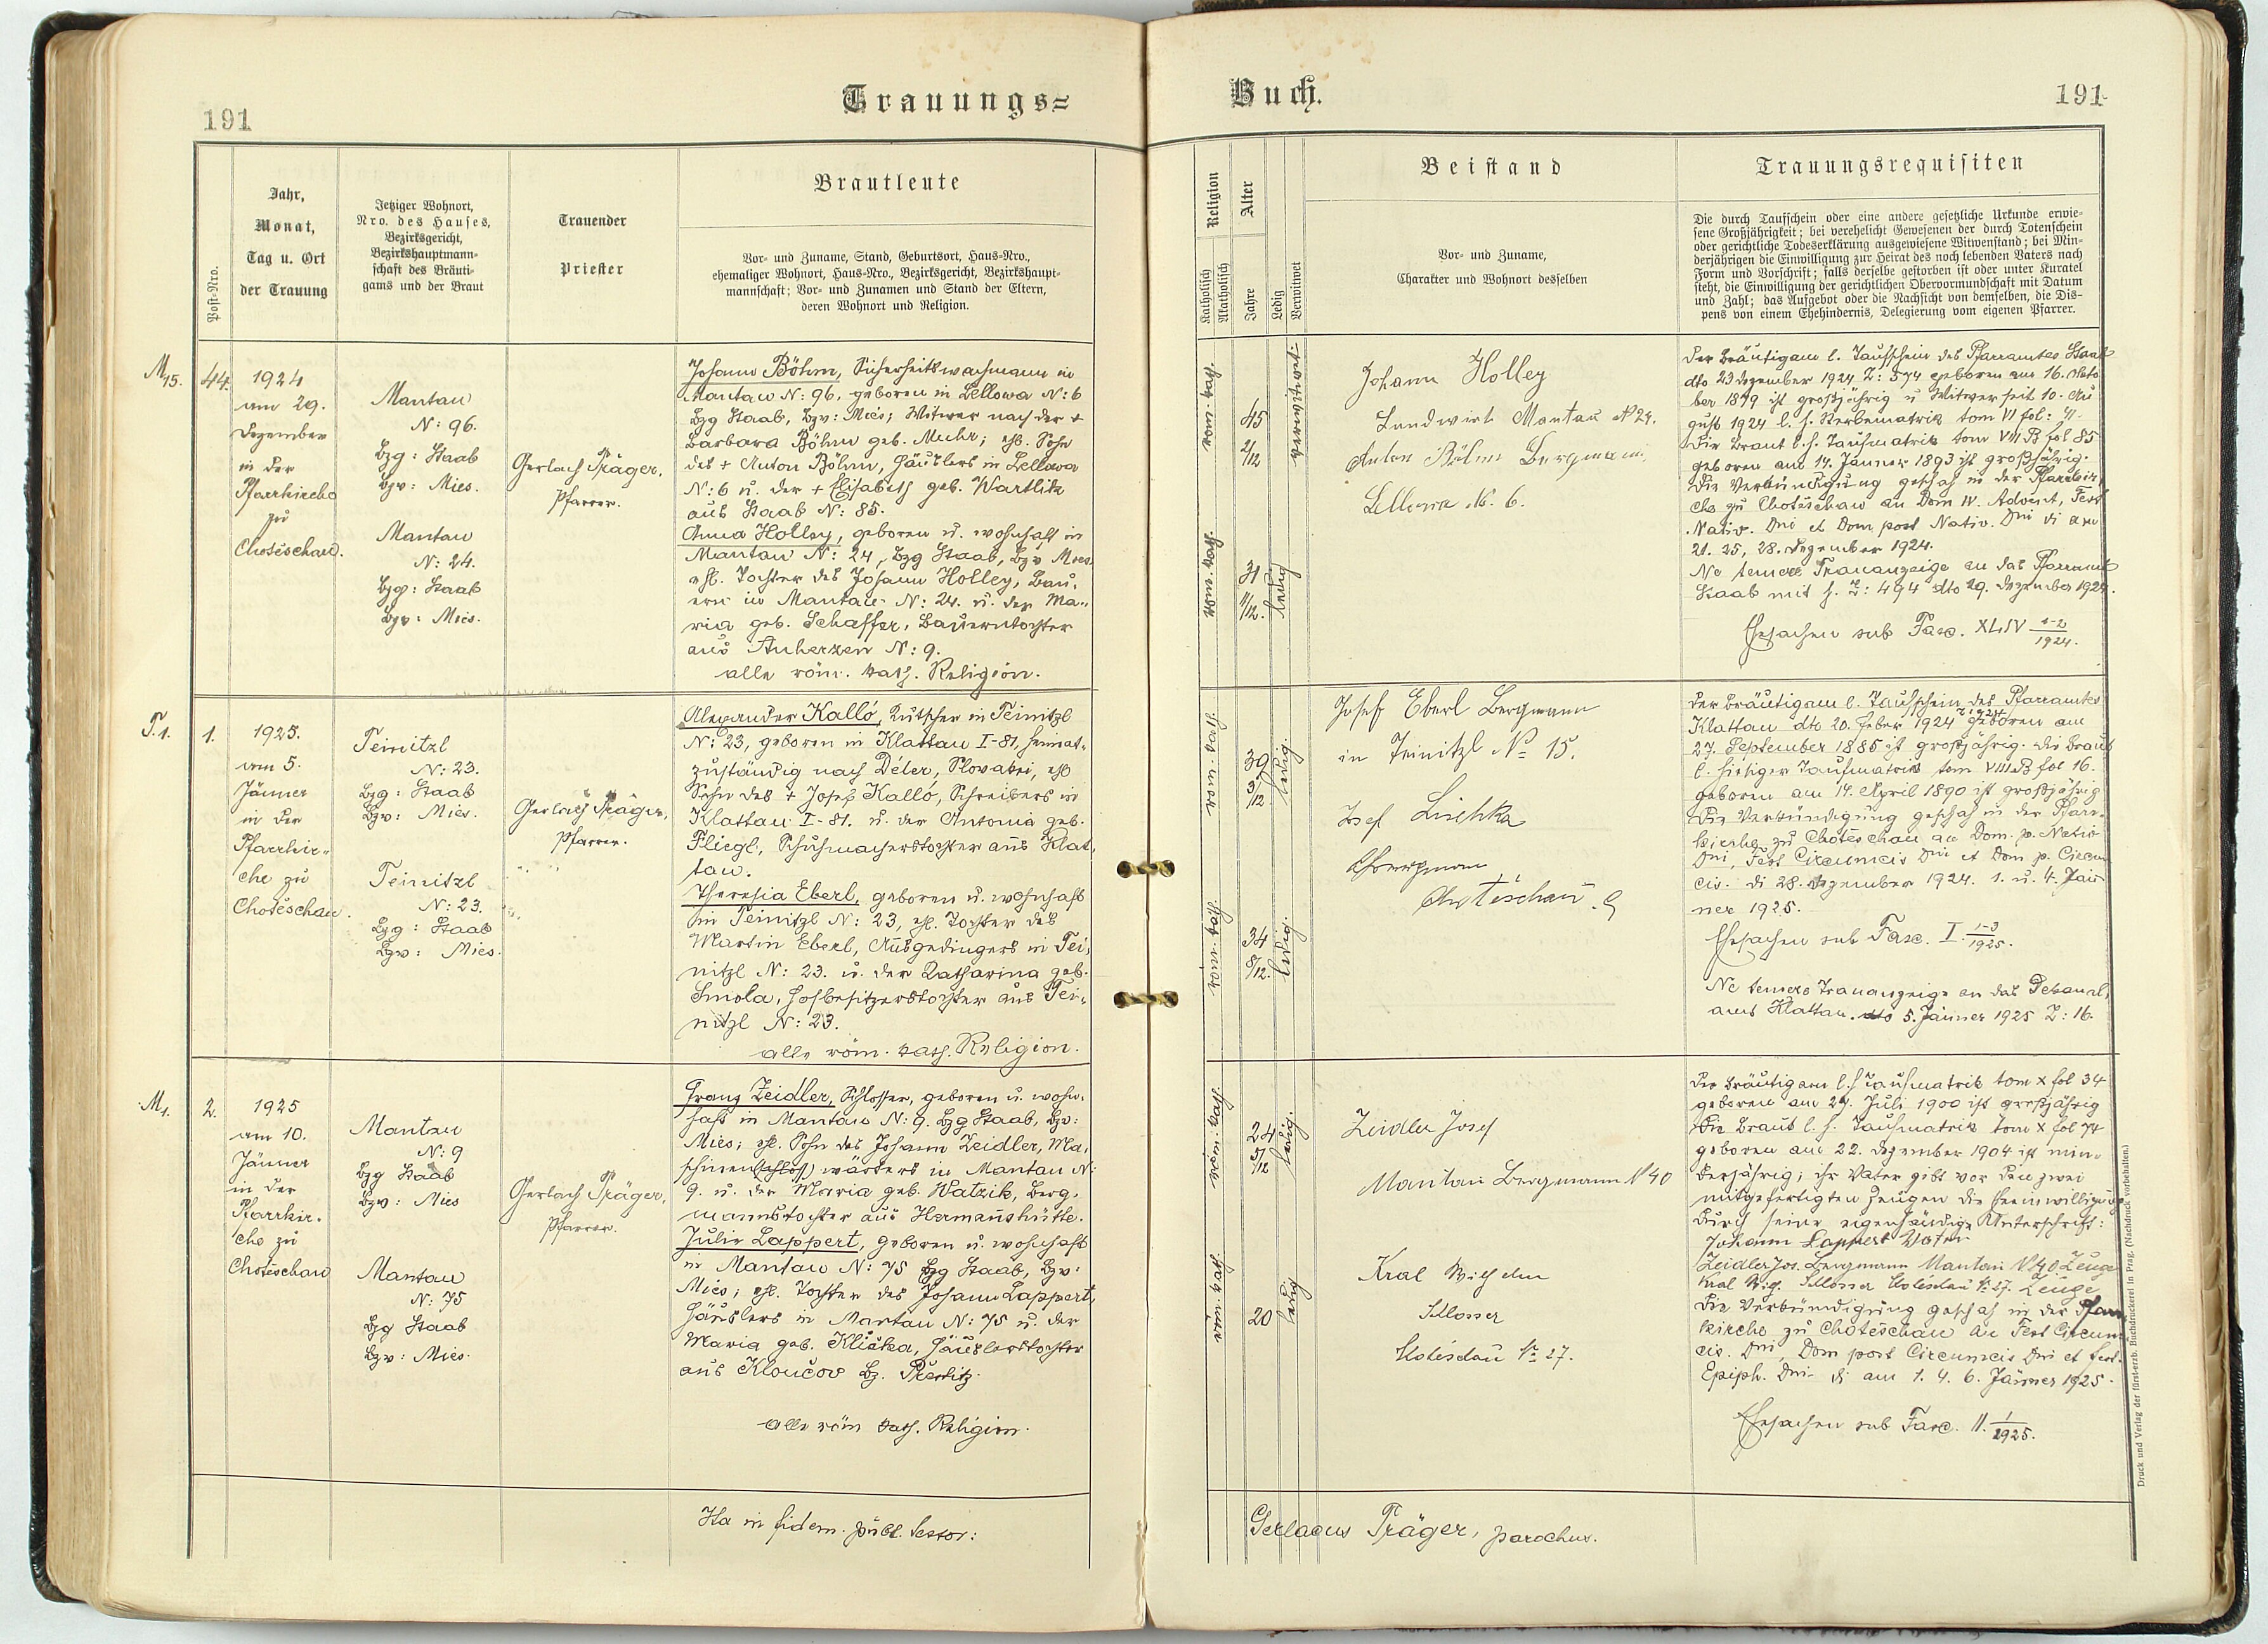 191
Trauungs=
Post-Nro.
Jahr,
Monat,
Tag u. Ort
der Trauung
Jetziger Wohnort,
Nro. des Hauses,
Bezirksgericht,
Bezirkshauptmann-
schaft des Bräuti-
gams und der Braut
Trauender
Priester
Brautleute
Vor- und Zuname, Stand, Geburtsort, Haus-Nro.,
ehemaliger Wohnort, Haus-Nro., Bezirksgericht, Bezirkshaupt-
mannschaft; Vor- und Zunamen und Stand der Eltern,
deren Wohnort und Religion.
M15.
44.
1924
am 29.
Dezember
in der
Pfarrkirche
zu
Chotěschau.
Mantau
N: 96.
Bzg: Staab
Bzv: Mies.
Mantau
N: 24.
Bzg: Staab
Bzv: Mies.
Gerlach Präger,
Pfarrer.
Johann Böhm, Sicherheitswachmann in
Mantau N: 96, geboren in Lellowa N: 6
Bzg Staab, Bzv: Mies; Witwer nach der +
Barbara Böhm geb. Muhr; ehl. Sohn
des + Anton Böhm, Häuslers in Lellowa
N: 6 u. der + Elisabeth geb. Wartlik
aus Staab N: 85.
Anna Holley, geboren u. wohnhaft in
Mantau N: 24, Bzg Staab, Bzv Mies
ehl. Tochter des Johann Holley, Bau-
ern in Mantau N: 24. u. der Ma-
ria geb. Schaffer, Bauerntochter
aus Auherzen N: 9.
alle röm. kath. Religion.
T.1.
1.
1925.
am 5.
Jänner
in der
Pfarrkir-
che zu
Chotěschau.
Teinitzl
N: 23.
Bzg: Staab
Bzv: Mies.
Teinitzl
N: 23.
Bzg: Staab
Bzv: Mies.
Gerlach Präger,
Pfarrer.
Alexander Kalló, Kutscher in Teinitzl
N: 23, geboren in Klattau I-81, heimat-
zuständig nach Déler, Slovakei, ehl
Sohn des + Josef Kalló, Schreibers in
Klattau I-81. u. der Antonia geb.
Fliegl, Schuhmacherstochter aus Klat-
tau.
Theresia Eberl, geboren u. wohnhaft
in Teinitzl N: 23, ehl. Tochter des
Martin Eberl, Ausgedingers in Tei-
nitzl N: 23. u. der Katharina geb.
Smola, Hofbesitzerstochter aus Tei-
nitzl N: 23.
alle röm. kath. Religion.
M1.
2.
1925
am 10.
Jänner
in der
Pfarrkir-
che zu
Chotěschau
Mantau
N: 9
Bzg Staab
Bzv: Mies
Mantau
N: 75
Bzg Staab
Bzv: Mies.
Gerlach Präger,
Pfarrer.
Franz Zeidler, Schlosser, geboren u. wohn-
haft in Mantau N: 9. Bzg Staab, Bzv:
Mies; ehl. Sohn des Johann Zeidler, Ma-
schinen(schloss) wärters in Mantau N:
9. u. der Maria geb. Watzik, Berg-
mannstochter aus Hermannshütte.
Julie Lappert, geboren u. wohnhaft
in Mantau N: 75 Bzg Staab, Bzv:
Mies; ehl. Tochter des Johann Lappert,
Häuslers in Mantau N: 75 u. der
Maria geb. Klička, Häuslerstochter
aus Kloučov Bz.
alle röm kath. Religion.
Ita in fidem. publ. testor:
Buch.
191
Religion
Katholisch
Akatholisch
Alter
Jahre
Ledig
Verwitwet
Beistand
Vor- und Zuname,
Charakter und Wohnort desselben
Trauungsrequisiten
Die durch Taufschein oder eine andere gesetzliche Urkunde erwie-
sene Großjährigkeit; bei verehelicht Gewesenen der durch Totenschein
oder gerichtliche Todeserklärung ausgewiesene Witwenstand; bei Min-
derjährigen die Einwilligung zur Heirat des noch lebenden Vaters nach
Form und Vorschrift; falls derselbe gestorben ist oder unter Kuratel
steht, die Einwilligung der gerichtlichen Obervormundschaft mit Datum
und Zahl; das Aufgebot oder die Nachsicht von demselben, die Dis-
pens von einem Ehehindernis, Delegierung vom eigenen Pfarrer.
röm. kath.
45
2/12
verwitwet.
röm. kath.
31
11/12.
ledig
Johann Holley
Landwirt Mantau N 24.
Anton Böhm Bergmann.
Lellowa N. 6.
Der Bräutigam l. Taufschein des Pfarramtes Staab
dto 23 Dezember 1924 Z: 574 geboren am 16. Okto
ber 1879 ist großjährig u Witwer seit 10. Au
gust 1924 l. h. Sterbematrik tom VI fol:
Die Braut l. h. Taufmatrik tom VIII B fol 85
geboren am 14. Jänner 1893 ist großjährig.
Die Verkündigung geschah in der Pfarrkir
che zu Chotěschau an Dom IV. Advent, Fest
Nativ. Dni et Dom post Nativ. Dni di am
21. 25, 28. Dezember 1924.
Ne temere Trauanzeige an das Pfarramt
Staab mit h. Z: 494 dto 29. Dezember 1924.
Ehesachen sub Fasc. XLIV 1-2/1924.
röm. kath.
39
3/12
ledig.
röm. kath.
34
8/12.
ledig.
Josef Eberl Bergmann
in Teinitzl No 15.
Josef Lischka
Chotěschau
Der Bräutigam l. Taufschein des Pfarramtes
Klattau dto 20. Feber 1924 geboren am
27. September 1885 ist großjährig. die Braut
l. hiesiger Taufmatrik tom VIII B fol 16.
geboren am 14. April 1890 ist großjährig
Die Verkündigung geschah in der Pfarr-
kirche zu Chotěschau an Dom. p. Nativ
Dni, Fest Circumcis Dni et Dom p. Circum
cis. di 28. Dezember 1924. 1. u. 4. Jän
ner 1925.
Ehesachen sub Fasc. I. 1-3/1925.
Ne temere Trauanzeige an das Dekanal-
amt Klattau. dto 5. Jänner 1925 Z: 16.
röm. kath.
24
5/12
ledig.
röm. kath.
20
ledig
Zeidler Josef
Mantau Bergmann N 40
Kral Wilhelm
Schlosser
Chotěschau No 27.
Der Bräutigam l. h Taufmatrik tom X fol 34
geboren am 29. Juli 1900 ist großjährig
Die Braut l. h. Taufmatrik tom X fol 74
geboren am 22. Dezember 1904 ist min-
derjährig; ihr Vater gibt vor den zwei
mitgefertigten Zeugen die Eheinwilligung
durch seine eigenhändige Unterschrift:
Johann Lappert Vater
Zeidler Jos. Bergmann Mantau N 40 Zeuge
Kral Wilh. Schlosser Chotěschau No 27. Zeuge
Die Verkündigung geschah in der Pfarr
kirche zu Chotěschau an Fest Circum
cis. Dni, Dom post Circumcis Dni et fest.
Epiph. Dni di am 1. 4. 6. Jänner 1925.
Ehesachen sub Fasc. II. 1/1925.
Gerlacus Präger, parochus.
Druck und Verlag der fürst-erzb. Buchdruckerei in Prag. (Nachdruck vorbehalten.)